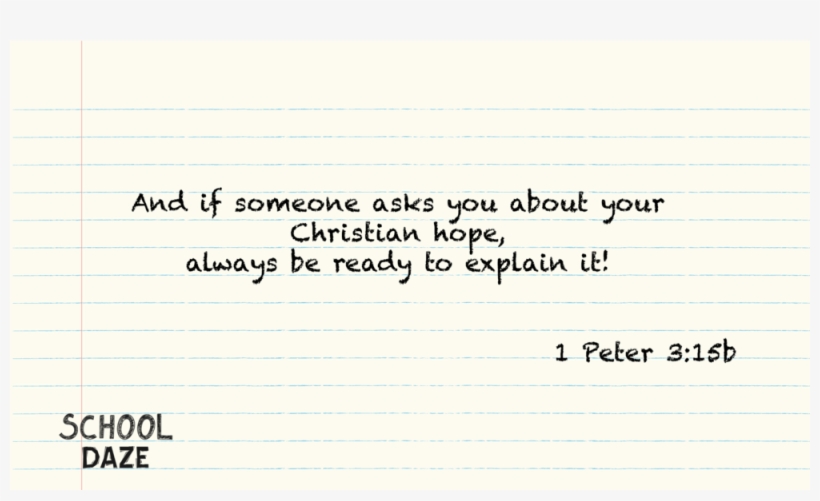 And if someone asks you about your
Christian hope,
always be ready to explain it!
1 Peter 3:15b
SCHOOL
DAZE